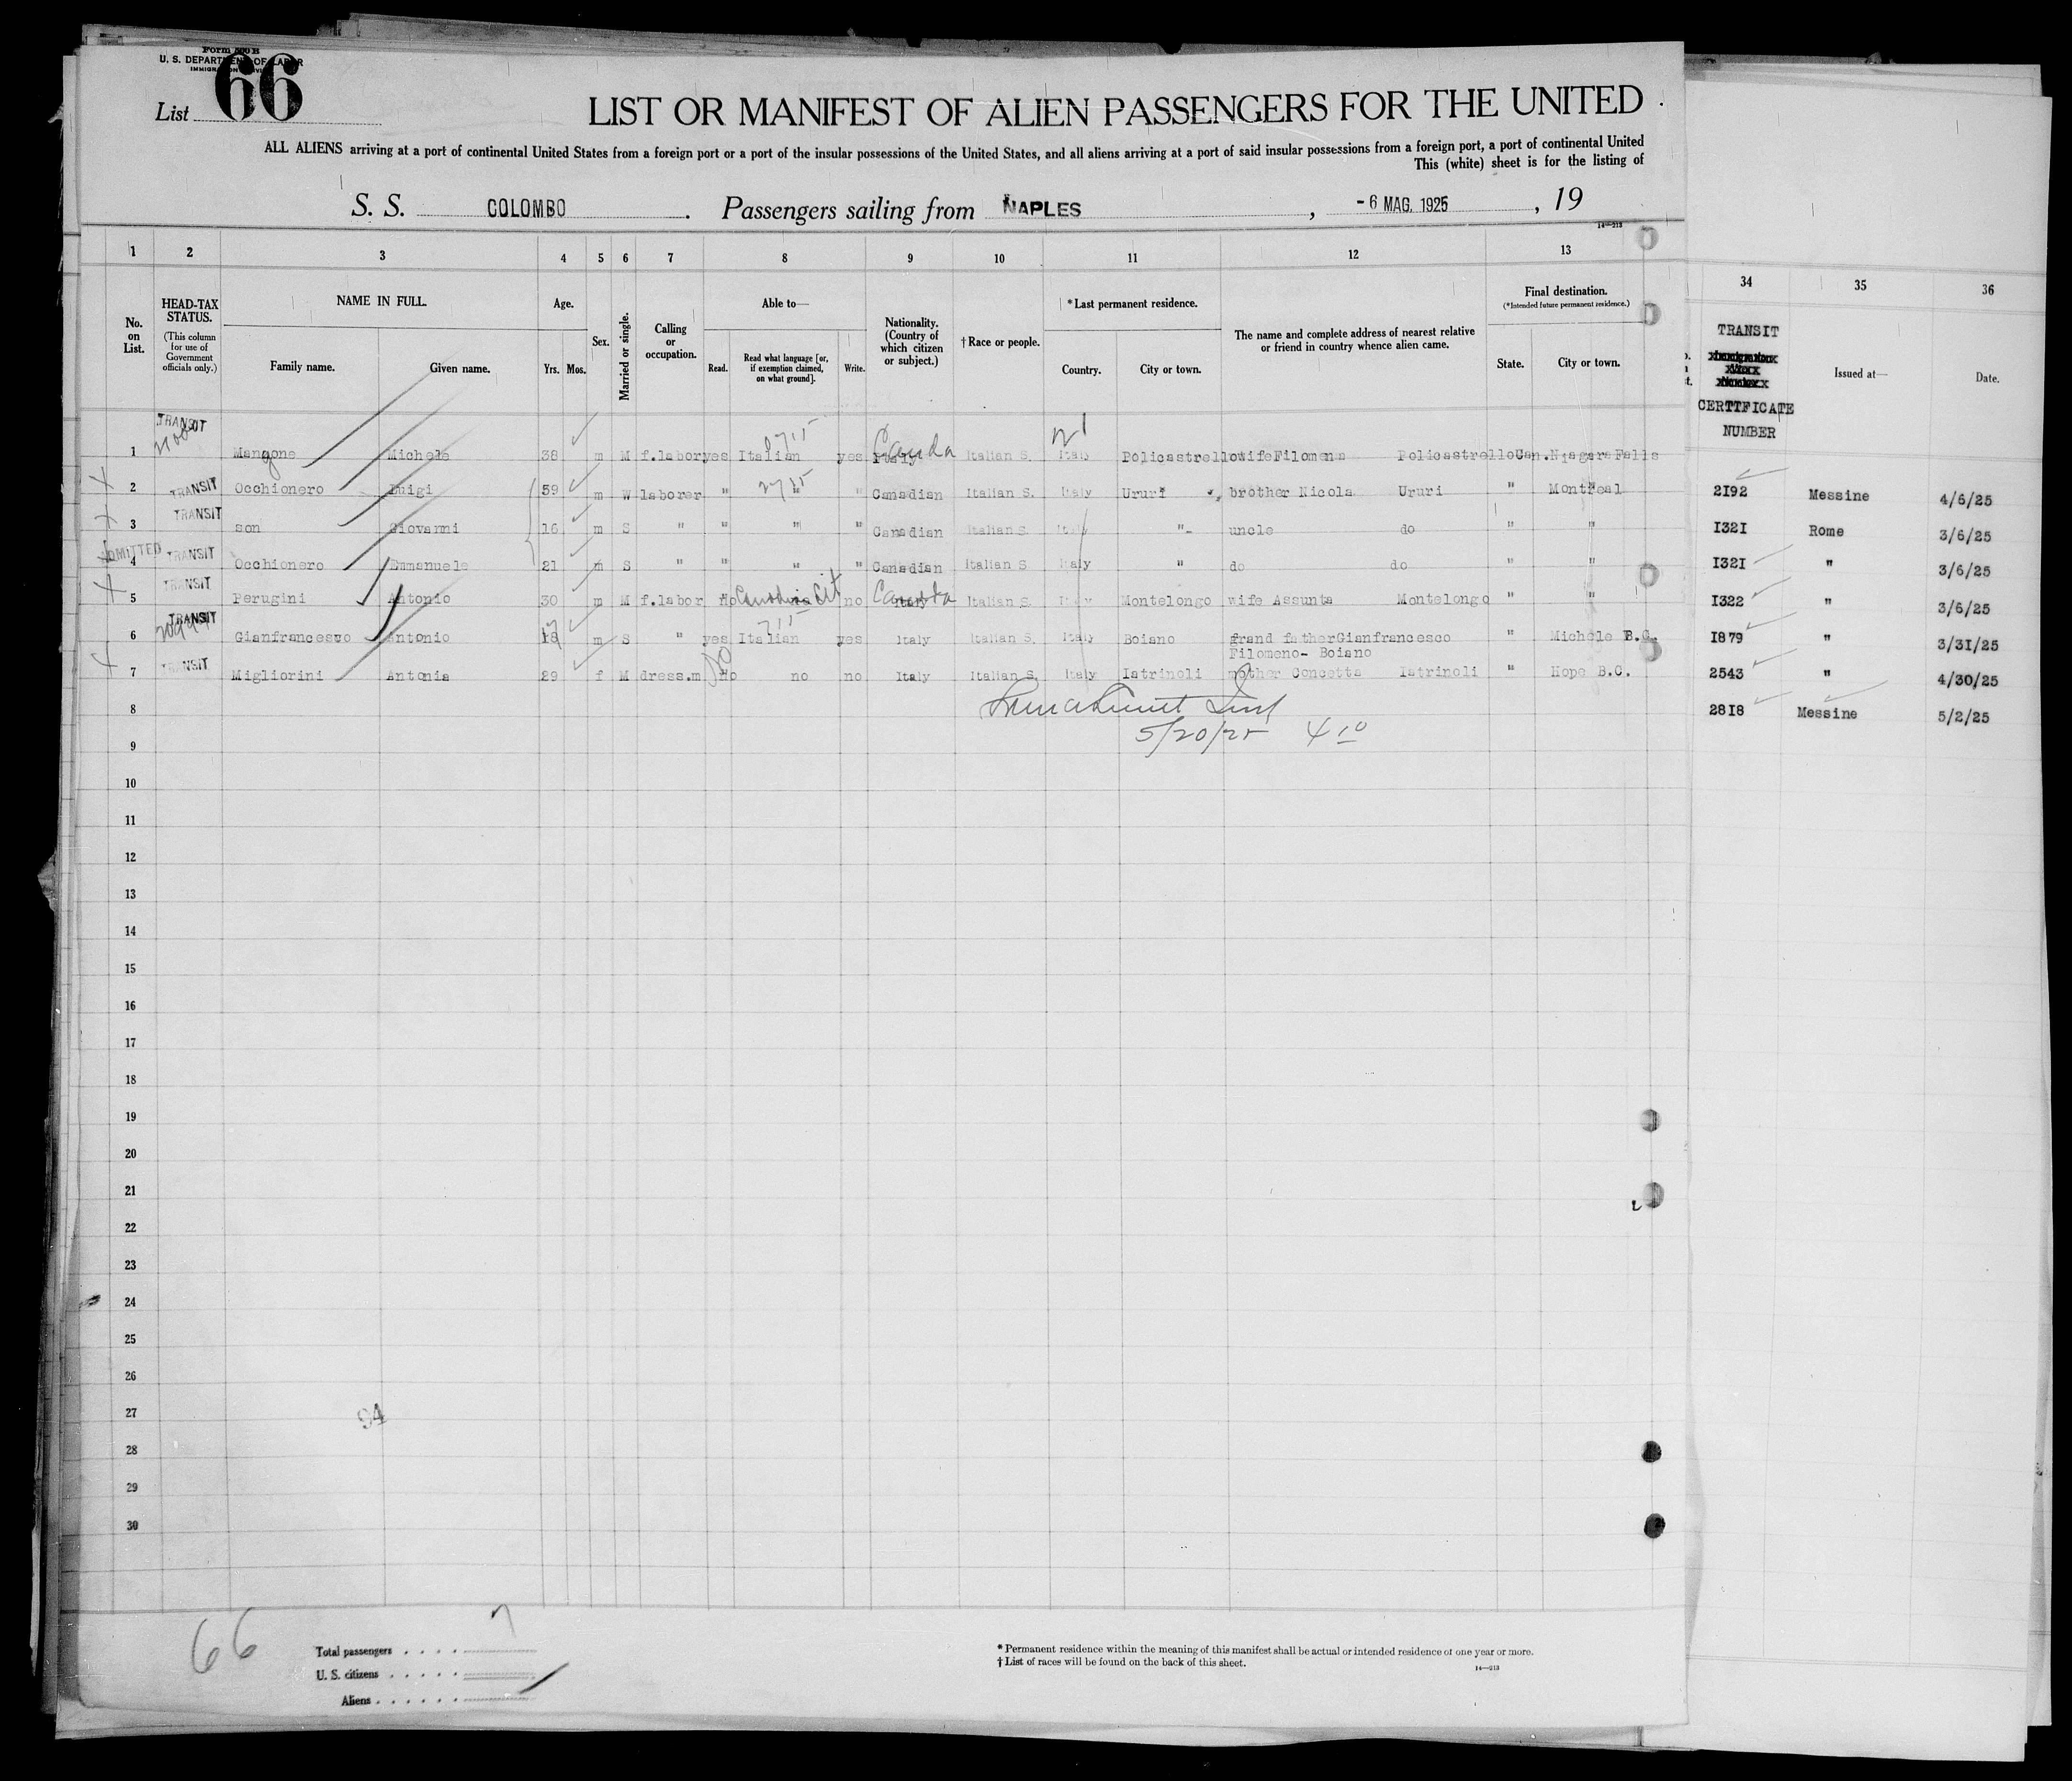 Form 500 B
U. S. DEPARTMENT OF LABOR
List 66
LIST OR MANIFEST OF ALIEN PASSENGERS FOR THE UNITED
ALL ALIENS arriving at a port of continental United States from a foreign port or a port of the insular possessions of the United States, and all aliens arriving at a port of said insular possessions from a foreign port, a port of continental United
This (white) sheet is for the listing of
S. S. COLOMBO. Passengers sailing from NAPLES, - 6 MAG. 1925, 19
14—213
1 2 3 4 5 6 7 8 9 10 11 12 13 34 35 36
No. on List.
HEAD-TAX STATUS.
(This column for use of Government officials only.)
NAME IN FULL.
Family name. Given name.
Age.
Yrs. Mos.
Sex.
Married or single.
Calling or occupation.
Able to—
Read. Read what language [or, if exemption claimed, on what ground]. Write.
Nationality. (Country of which citizen or subject.)
† Race or people.
* Last permanent residence.
Country. City or town.
The name and complete address of nearest relative or friend in country whence alien came.
Final destination.
(* Intended future permanent residence.)
State. City or town.
TRANSIT
CERTTFICATE
NUMBER
Issued at—
Date.
TRANSIT
1 Mangone Michele 38 m M f.labor yes Italian yes Italy Canada Italian S. Italy Policastrello wife Filomena Policastrello Can. Niagara Falls
2 TRANSIT Occhionero Luigi 39 m W laborer " " " Canadian Italian S. Italy Ururi brother Nicola Ururi " Montreal
3 TRANSIT son Giovanni 16 m S " " " " Canadian Italian S. Italy "- uncle do " "
ADMITTED
4 TRANSIT Occhionero Emmanuele 21 m S " " " " Canadian Italian S Italy " do do " "
5 TRANSIT Perugini Antonio 30 m M f.labor no Canadian Cit no Italy Canada Italian S. Italy Montelongo wife Assunta Montelongo " "
6 TRANSIT Gianfrancesco Antonio 18 m S " yes Italian yes Italy Italian S. Italy Boiano grand father Gianfrancesco " Michele B.C.
Filomeno- Boiano
7 TRANSIT Migliorini Antonia 29 f M dress.m no no no Italy Italian S. Italy Iatrinoli mother Concetta Iatrinoli " Hope B.C.
2192 Messine 4/6/25
1321 Rome 3/6/25
1321 " 3/6/25
1322 " 3/6/25
1879 " 3/31/25
2543 " 4/30/25
2818 Messine 5/2/25
8
5/20/25 4 10
9
10
11
12
13
14
15
16
17
18
19
20
21
22
23
24
25
26
27
94
28
29
30
66
Total passengers . . . . 7
U. S. citizens . . . . .
Aliens . . . . . .
* Permanent residence within the meaning of this manifest shall be actual or intended residence of one year or more.
† List of races will be found on the back of this sheet.
14—213